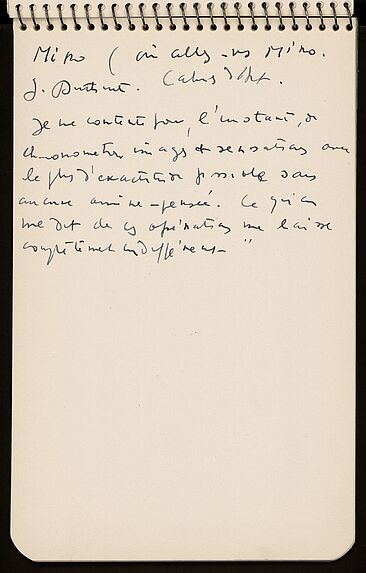 Miro ( où allez-vs Miro.
J. Duthuit. Cahiers d'Art.
Je me contente pour l'instant, de
chronometrer images et sensations avec
le plus d'exactitude possible sans
aucune arrière-pensée. Ce qu'on
me dit de ces opérations me laisse
complètement indifférent - "